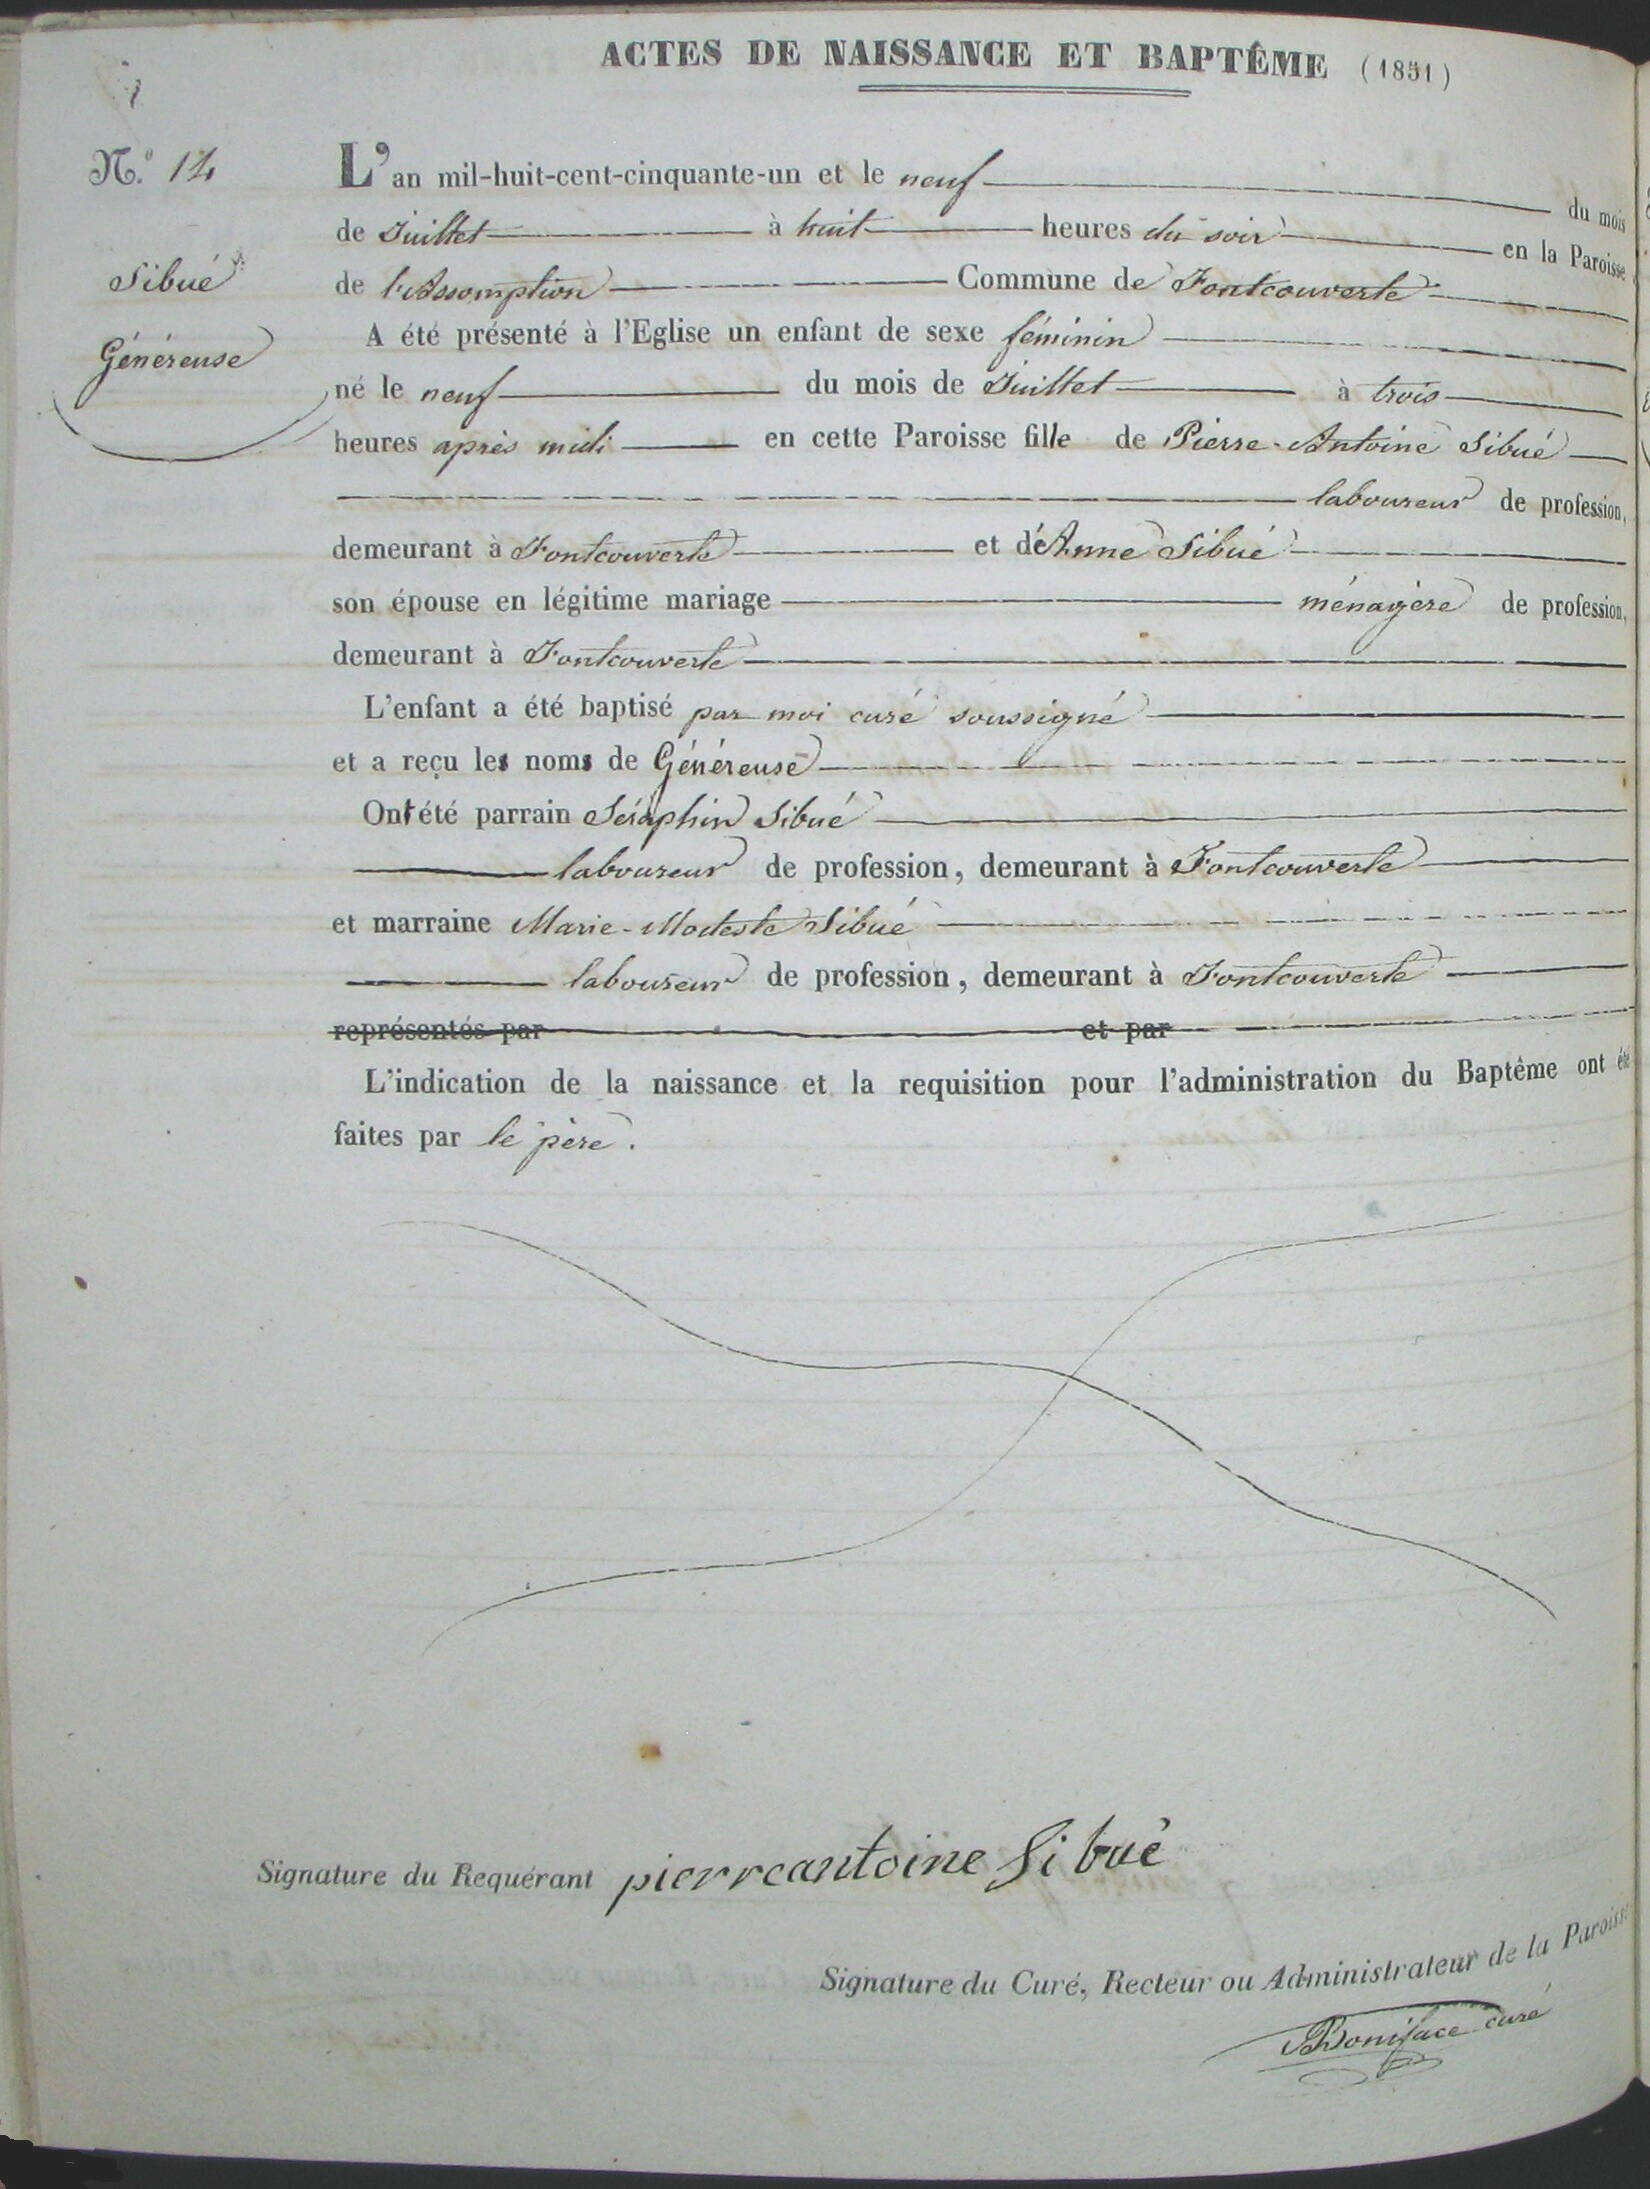 ACTES DE NAISSANCE ET BAPTÊME (1851)
N.º 14
Sibué
Généreuse
L'an mil-huit-cent-cinquante-un et le neuf du mois
de Juillet à huit heures du soir en la Paroisse
de l'Assomption Commune de Fontcouverte
A été présenté à l'Eglise un enfant de sexe féminin
né le neuf du mois de Juillet à trois
heures après midi en cette Paroisse fille de Pierre-Antoine Sibué
laboureur de profession,
demeurant à Fontcouverte et d'Anne Sibué
son épouse en légitime mariage ménagère de profession,
demeurant à Fontcouverte
L'enfant a été baptisé par moi curé soussigné
et a reçu les noms de Généreuse
Ont été parrain Séraphin Sibué
laboureur de profession, demeurant à Fontcouverte
et marraine Marie-Modeste Sibué
laboureur de profession, demeurant à Fontcouverte
représentés par et par
L'indication de la naissance et la requisition pour l'administration du Baptême ont été
faites par le père.
Signature du Requérant pierreantoine Sibué
Signature du Curé, Recteur ou Administrateur de la Paroisse
Boniface curé